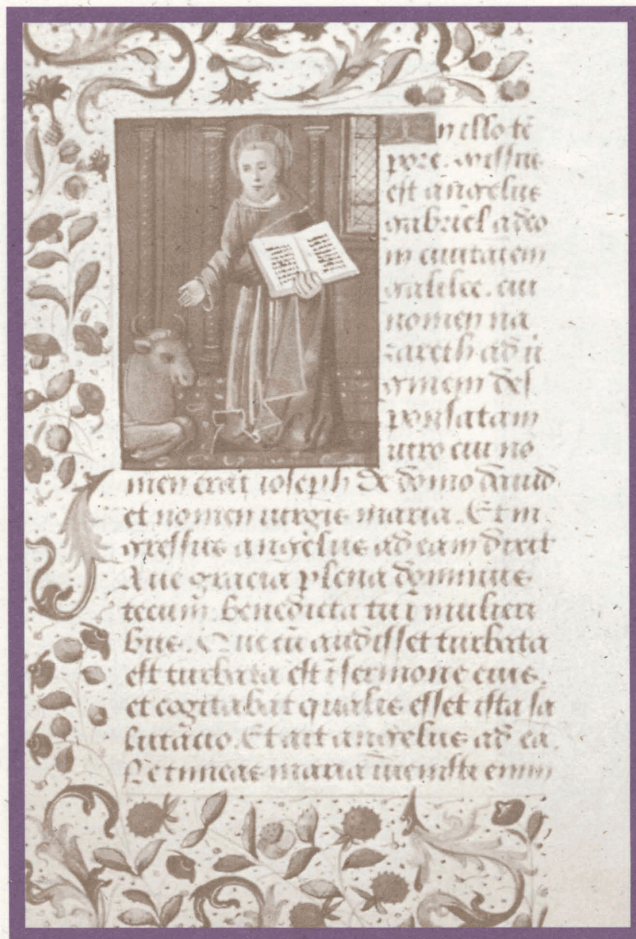 In illo tē
pore. missus
est angelus
gabriel a deo
in ciuitatem
galilee. cui
nomen na
zareth ad ū
ginem des
ponsatam
uiro cui no
men erat ioseph de domo dauid
et nomen uirgīs maria. Et in
gressus angelus ad eam dixit
Aue gracia plena dominus
tecum. benedicta tu ī mulieri
bus. Que cū audisset turbata
est turbata est ī sermone eius.
et cogitabat qualis esset ista sa
lutacio. Et ait angelus ad eā
Ne timeas maria inuenisti enim